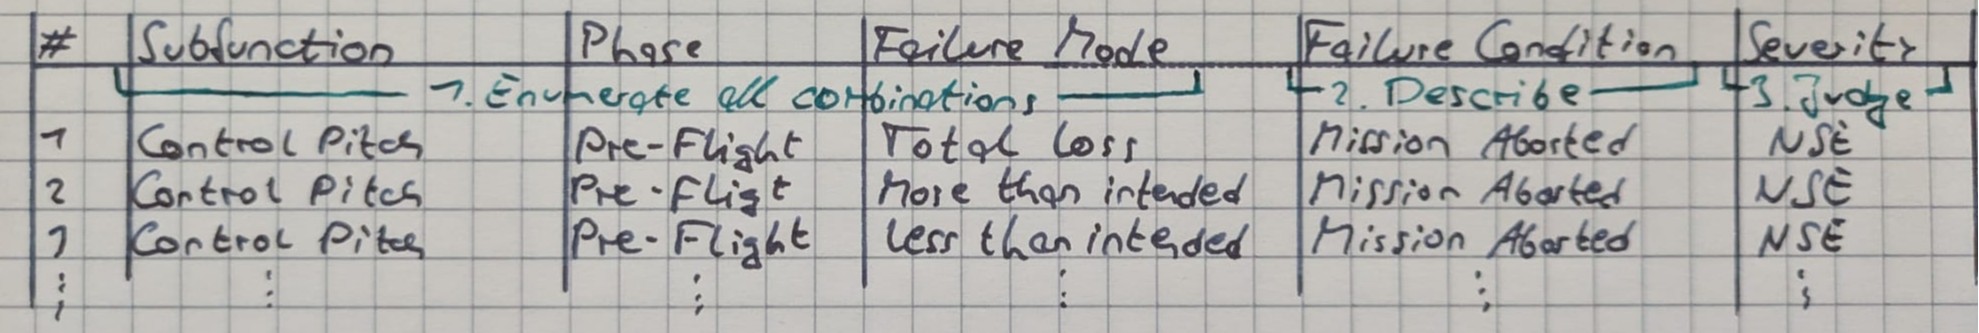 # Subfunction Phase Failure Mode Failure Condition Severity
1. Enumerate all combinations 2. Describe 3. Judge
1 Control Pitch Pre-Flight Total Loss Mission Aborted NSE
2 Control Pitch Pre-Fligt More than intended Mission Aborted NSE
3 Control Pitch Pre-Flight Less than intended Mission Aborted NSE
⋮ ⋮ ⋮ ⋮ ⋮ ⋮